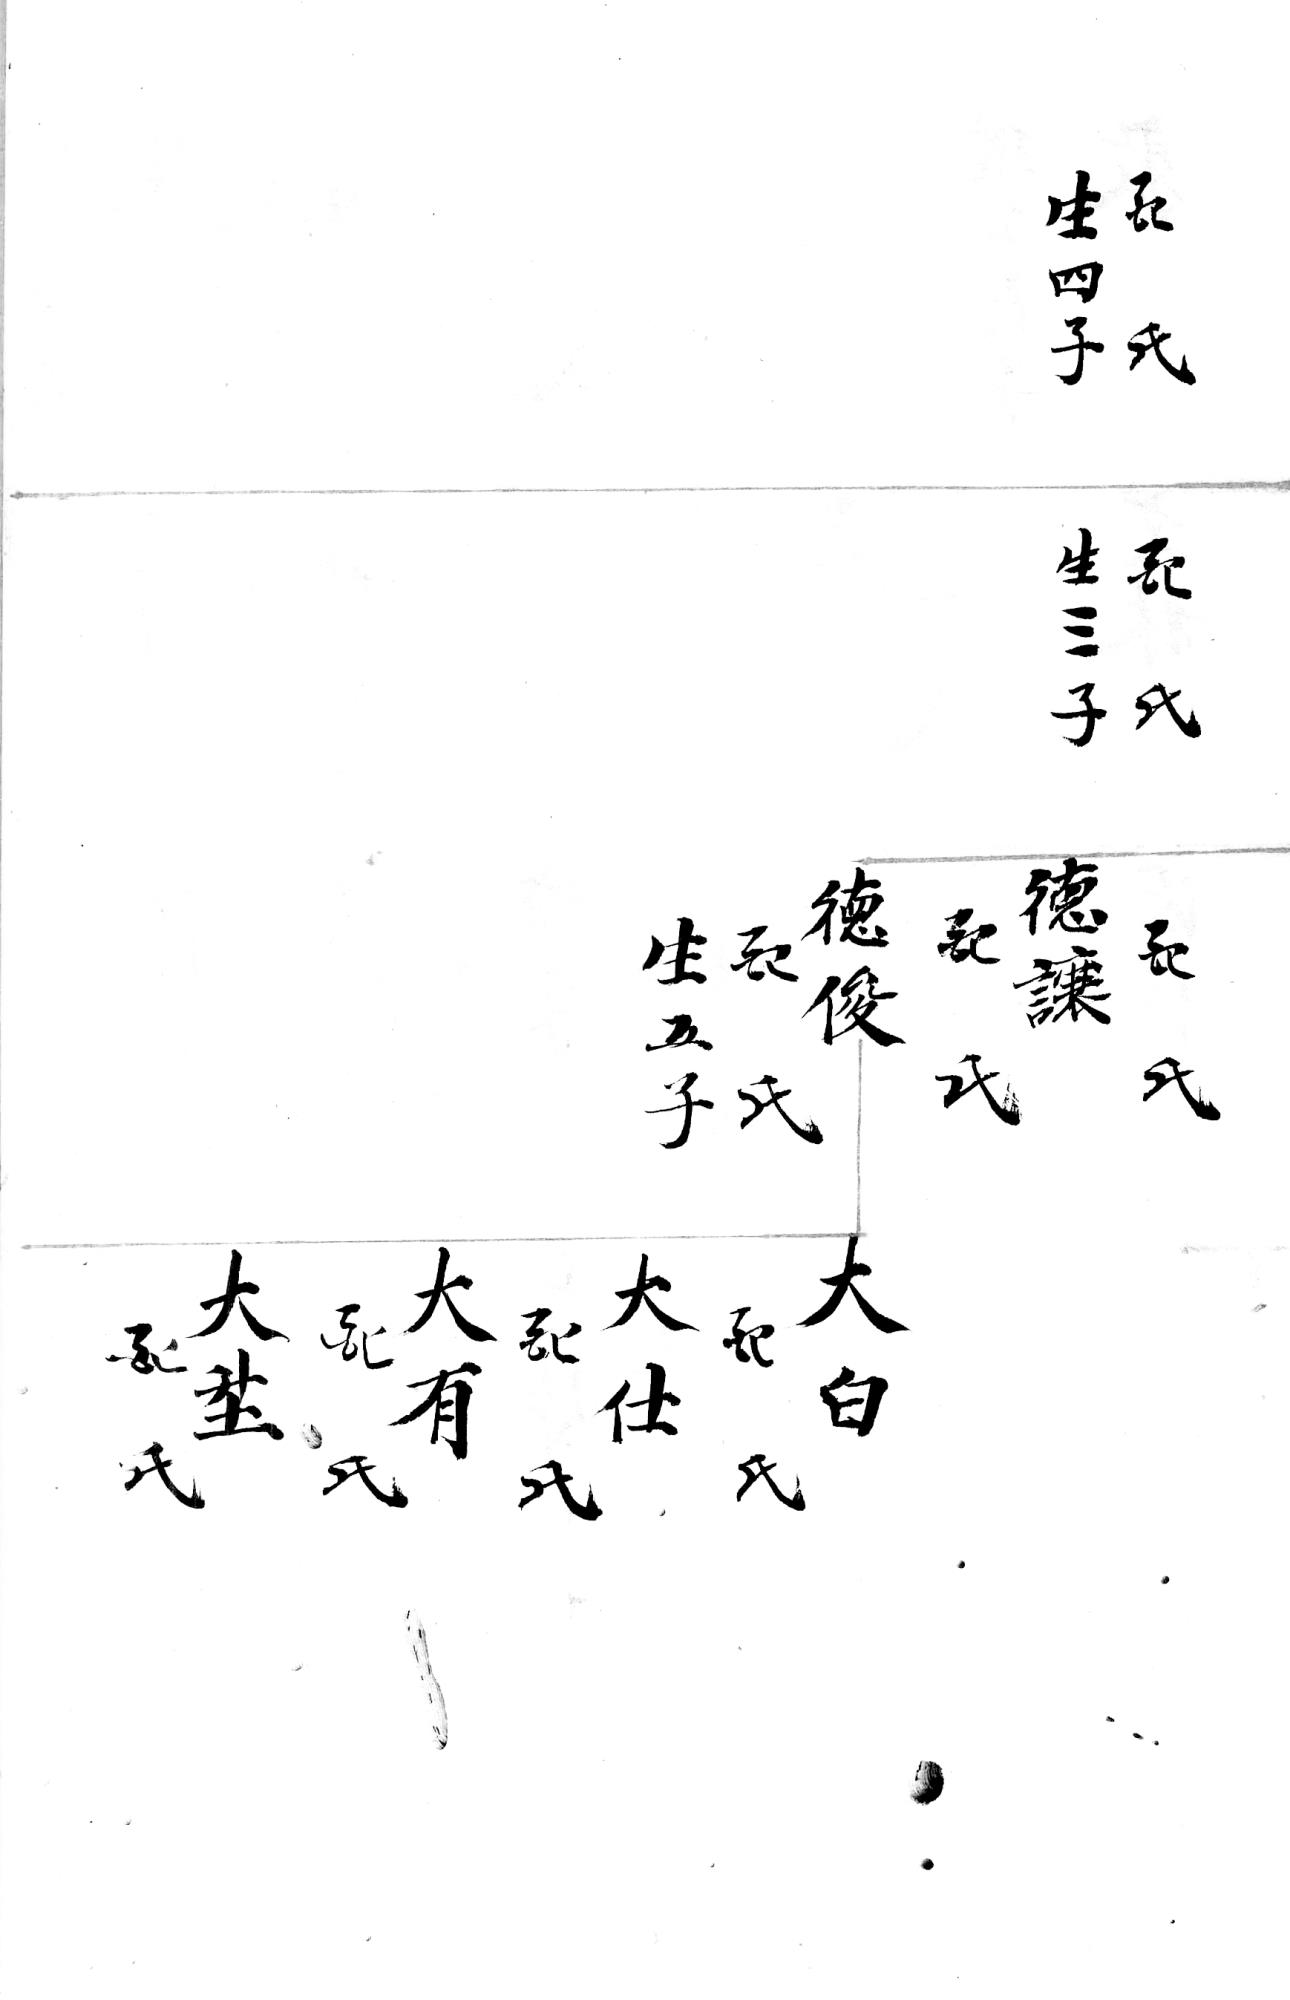 配 氏
生四子
配 氏
生三子
配 氏
德讓
配 氏
德俊
配 氏
生五子
大白
配 氏
大仕
配 氏
大有
配 氏
大
配 氏